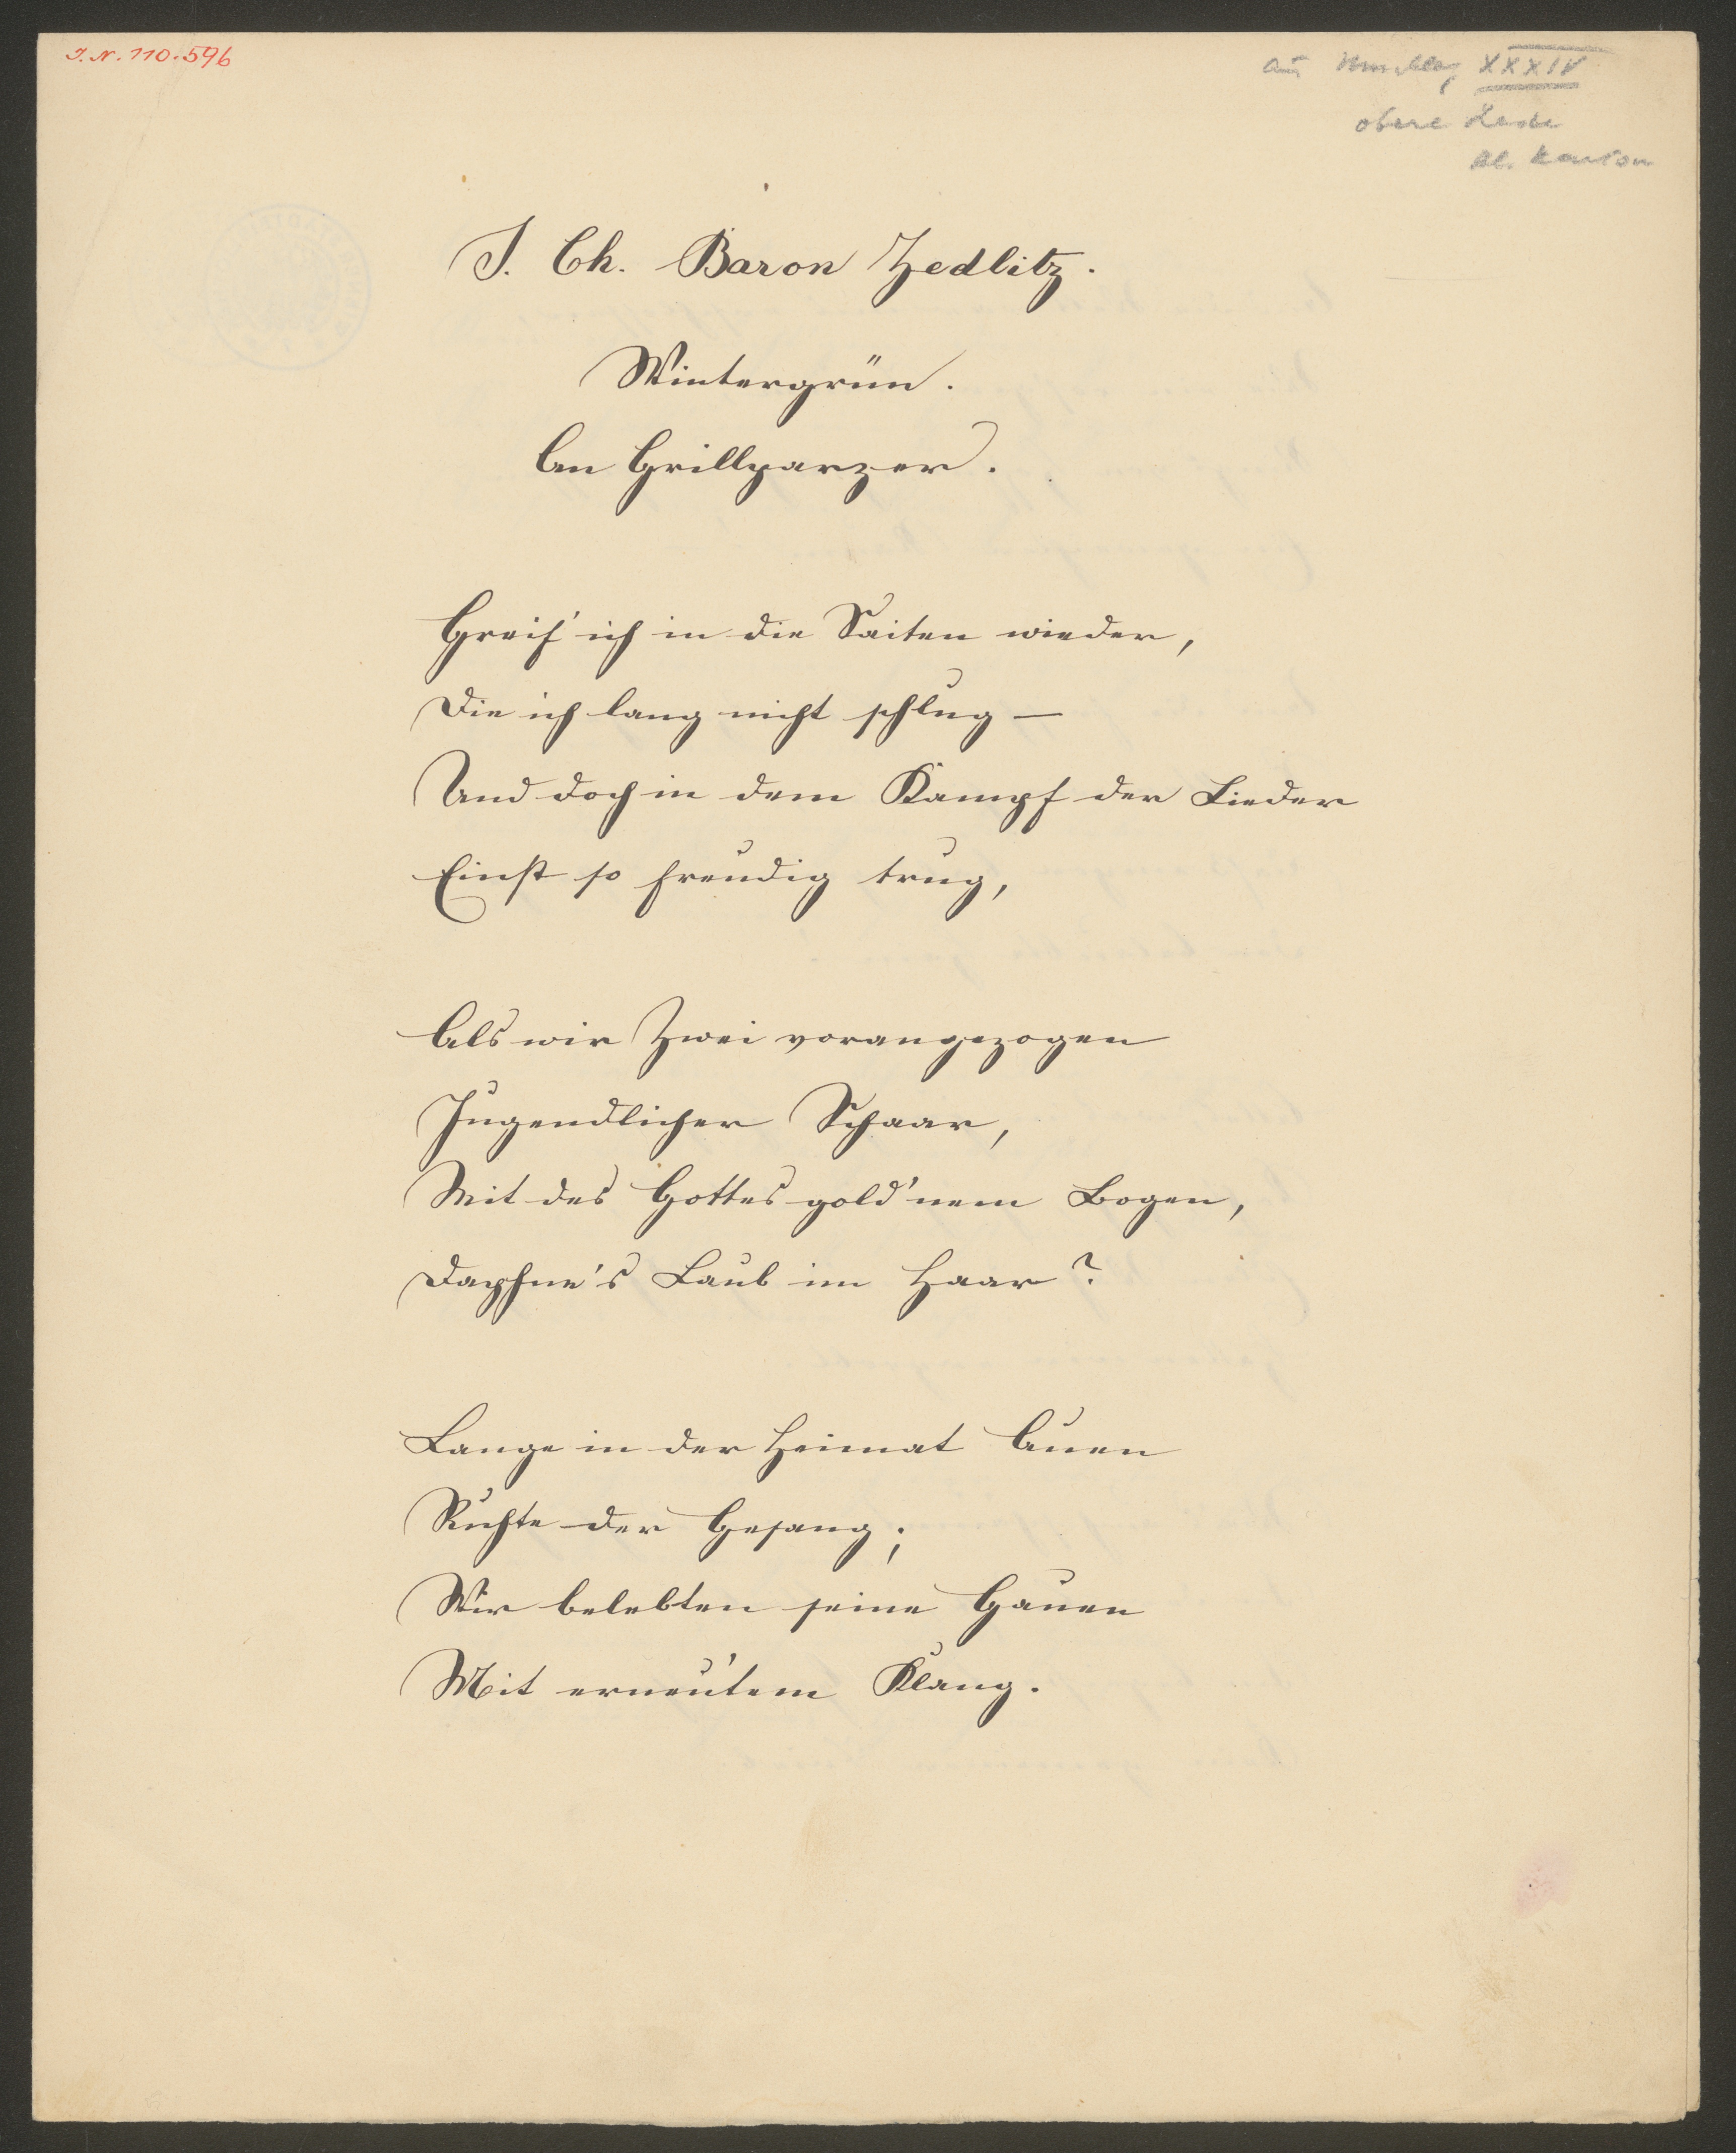 J. N. 110.596
aus Umschlag XXXIV
obere Lade
kl. Karton
J. Ch. Baron Zedlitz.
Wintergrün.
An Grillparzer.
Greif' ich in die Saiten wieder,
Die ich lang nicht schlug —
Und doch in dem Kampf der Lieder
Einst so freudig trug,
Als wir Zwei vorangezogen
Jugendlicher Schaar,
Mit des Gottes gold'nem Bogen,
Daphne's Laub im Haar?
Lange in der Heimat Auen
Ruhte der Gesang;
Wir belebten seine Gauen
Mit erneu'tem Klang.